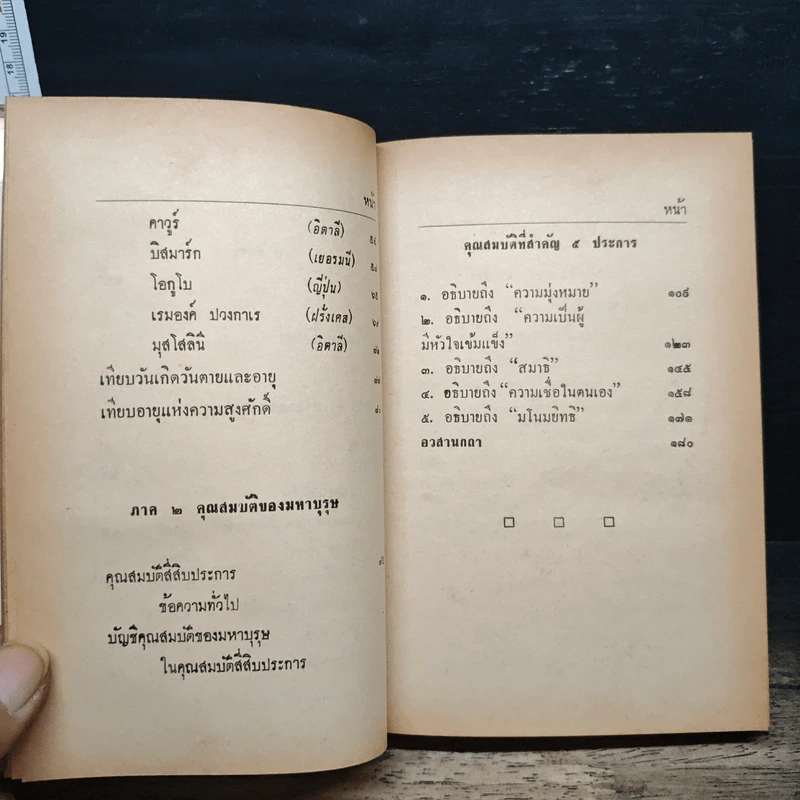 19
18
หน้า
คาวูร์ (อิตาลี)
บิสมาร์ก (เยอรมนี)
โอกูโบ (ญี่ปุ่น)
เรมองค์ ปวงกาเร (ฝรั่งเศส)
มุสโสลินี (อิตาลี)
เทียบวันเกิดวันตายและอายุ
เทียบอายุแห่งความสูงศักดิ์
ภาค ๒ คุณสมบัติของมหาบุรุษ
คุณสมบัติสี่สิบประการ
ข้อความทั่วไป
บัญชีคุณสมบัติของมหาบุรุษ
ในคุณสมบัติสี่สิบประการ
หน้า
คุณสมบัติที่สำคัญ ๕ ประการ
๑. อธิบายถึง “ความมุ่งหมาย”
๒. อธิบายถึง “ความเป็นผู้
มีหัวใจเข้มแข็ง” ๑๒๓
๓. อธิบายถึง “สมาธิ” ๑๔๕
๔. อธิบายถึง “ความเชื่อในตนเอง” ๑๕๘
๕. อธิบายถึง “มโนมยิทธิ” ๑๗๑
อวสานกถา ๑๘๐